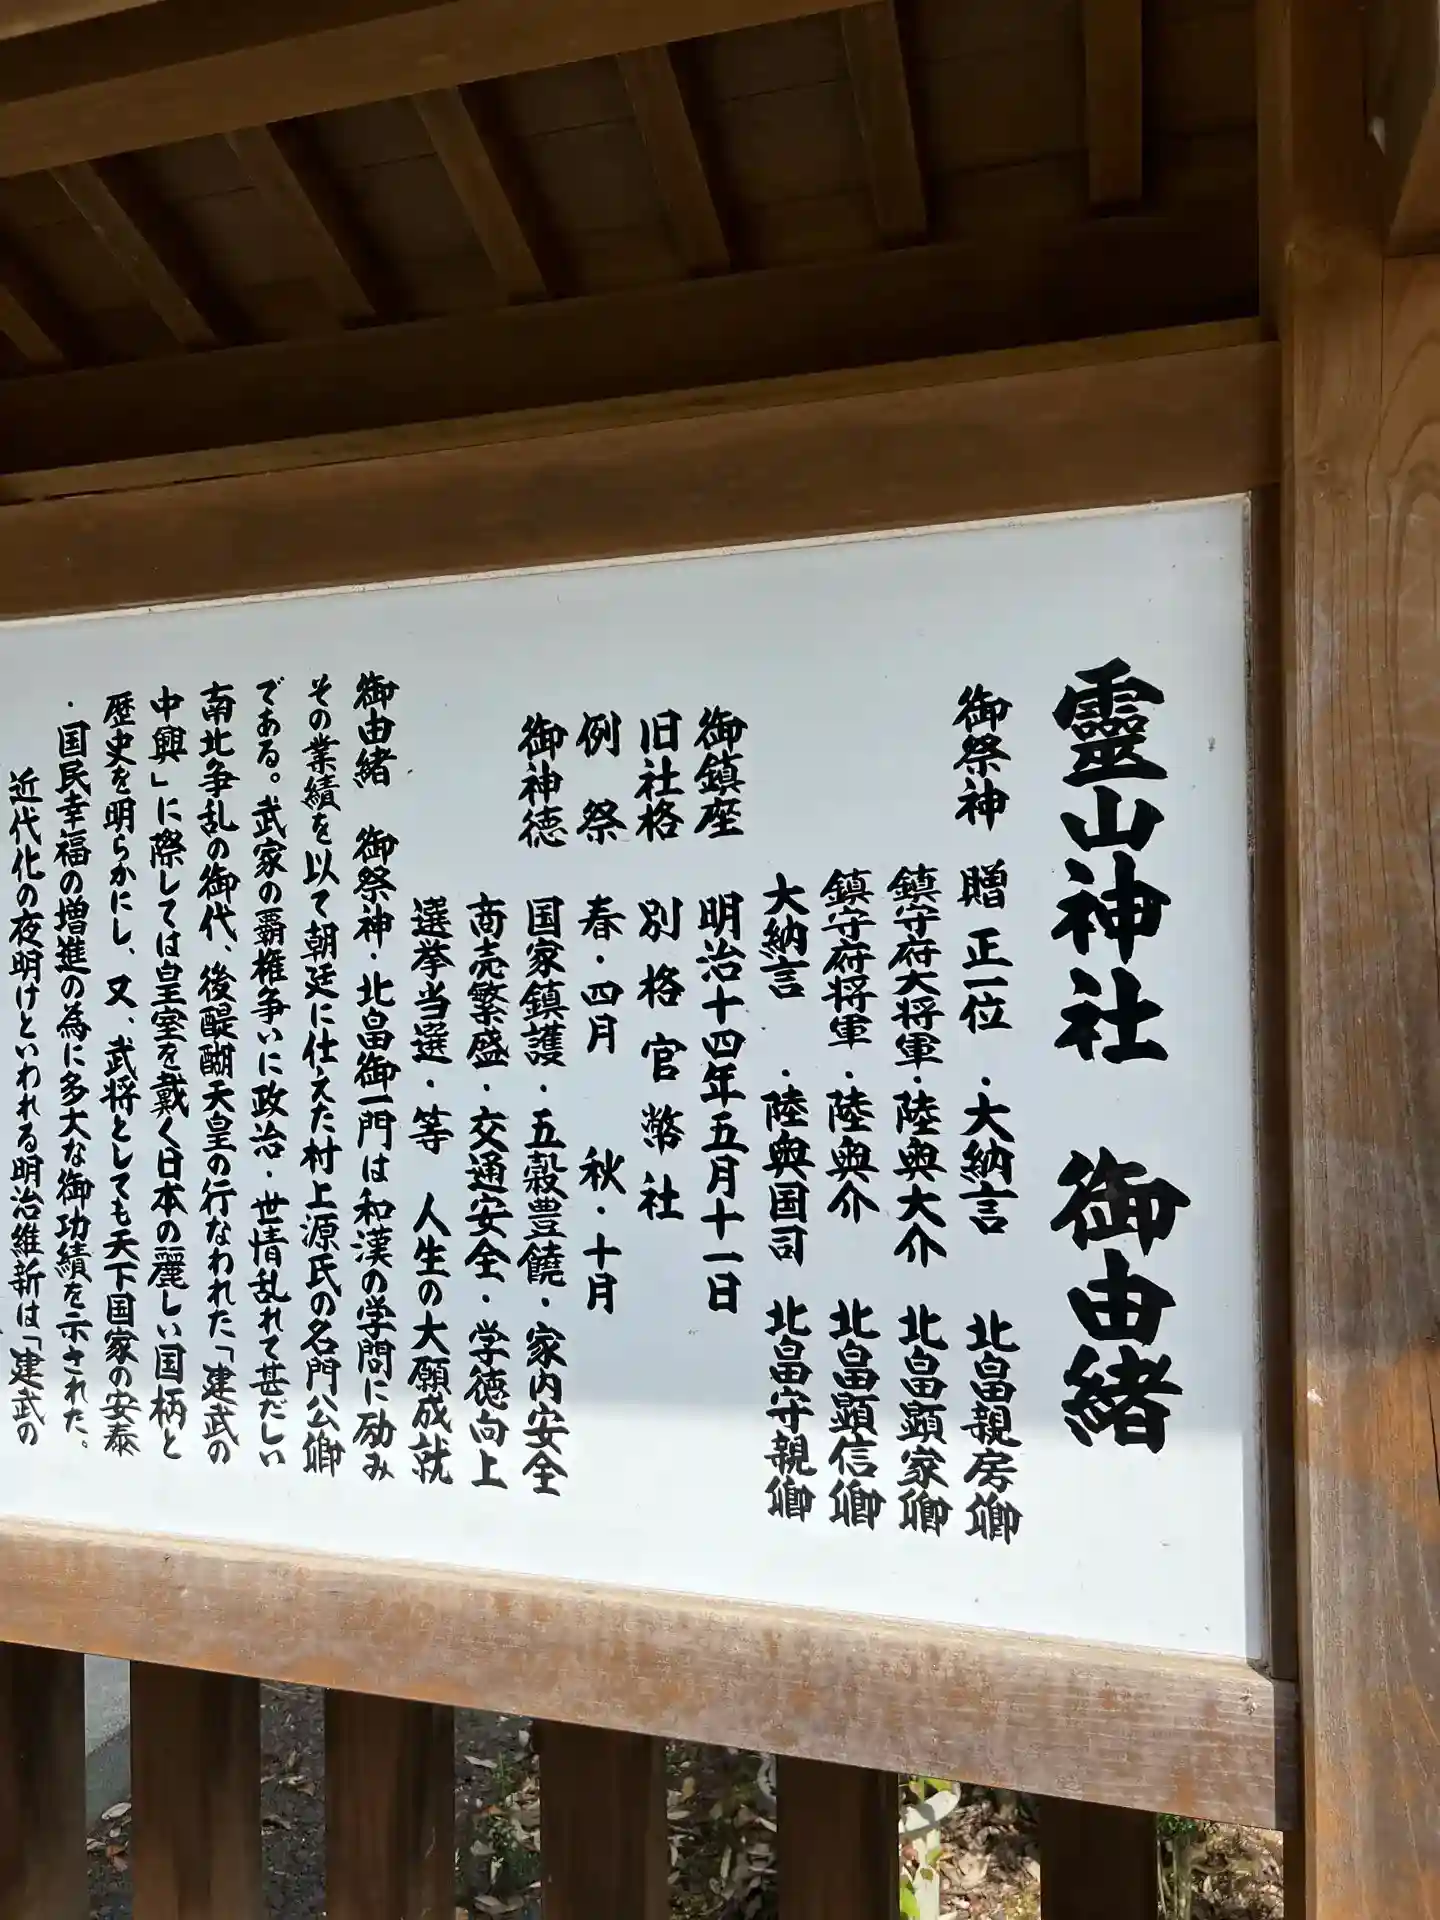 靈山神社　御由緒
御祭神　贈 正一位　・大納言　北畠親房卿
鎮守府大将軍・陸奥大介　北畠顕家卿
鎮守府将軍・陸奥介　北畠顕信卿
大納言　・陸奥国司　北畠守親卿
御鎮座　明治十四年五月十一日
旧社格　別格官幣社
例祭　春・四月　秋・十月
御神徳　国家鎮護・五穀豊饒・家内安全
商売繁盛・交通安全・学徳向上
選挙当選・等　人生の大願成就
御由緒　御祭神・北畠御一門は和漢の学問に励み
その業績を以て朝廷に仕えた村上源氏の名門公卿
である。武家の覇権争いに政治・世情乱れて甚だしい
南北争乱の御代、後醍醐天皇の行なわれた「建武の
中興」に際しては皇室を戴く日本の麗しい国柄と
歴史を明らかにし、又、武将としても天下国家の安泰
・国民幸福の増進の為に多大な御功績を示された。
近代化の夜明けといわれる明治維新は「建武の